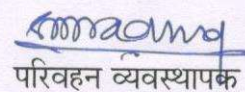 परिवहन व्यवस्थापक